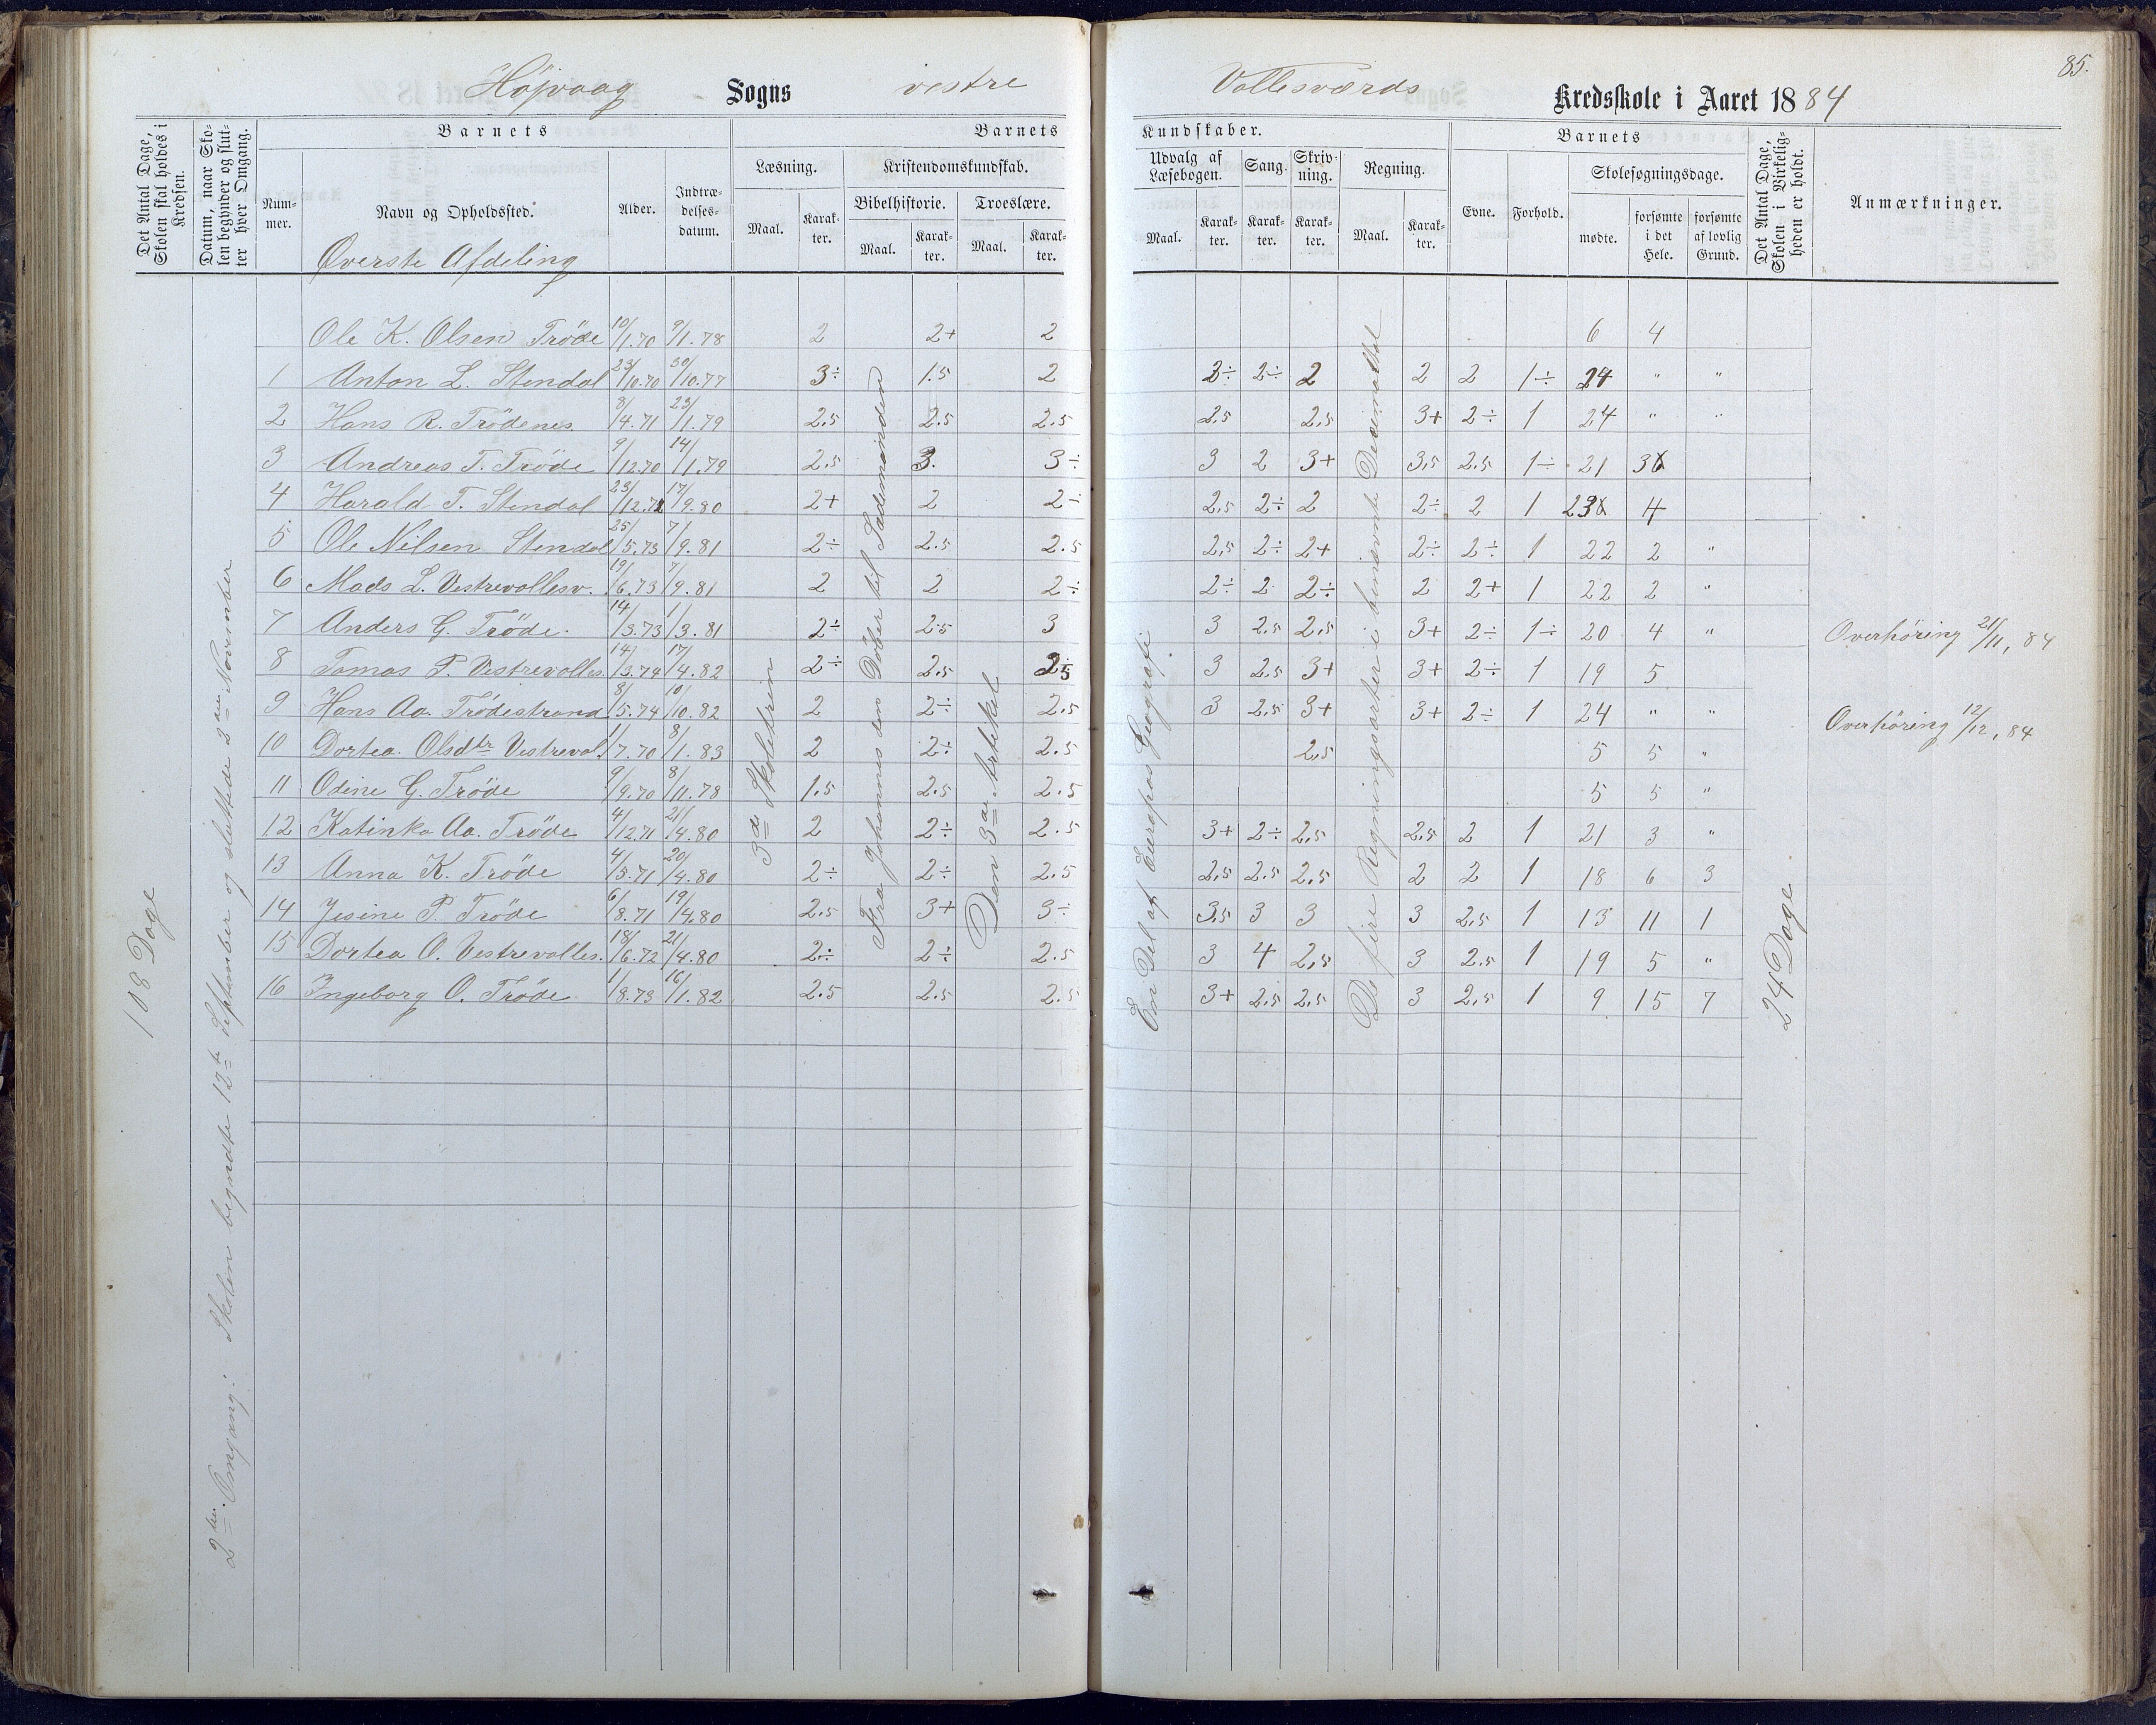 85.
Højvaag Sogns vestre Vallesværds Kredsskole i Aaret 1884
Det Antal Dage, Skolen skal holdes i Kredsen.
Datum, naar Skolen begynder og slutter hver Omgang.
Barnets
Nummer.
Navn og Opholdssted.
Alder.
Indtrædelsesdatum.
Barnets Kundskaber.
Læsning.
Maal.
Karakter.
Kristendomskundskab.
Bibelhistorie.
Maal.
Karakter.
Troeslære.
Maal.
Karakter.
Udvalg af Læsebogen.
Maal.
Karakter.
Sang.
Karakter.
Skrivning.
Karakter.
Regning.
Maal.
Karakter.
Barnets
Evne.
Forhold.
Skolesøgningsdage.
mødte.
forsømte i det Hele.
forsømte af lovlig Grund.
Det Antal Dage, Skolen i Virkeligheden er holdt.
Anmærkninger.
Øverste Afdeling
Ole K. Olsen Trøde 10/1.70 9/1.78 2 2+ 2 6 4
1 Anton L. Stendal 23/10.70 30/10.77 3÷ 1.5 2 3÷ 2÷ 2 2 2 1÷ 24 " "
2 Hans R. Trødenes. 8/4.71 23/1.79 2.5 2.5 2.5 2.5 2,5 3+ 2÷ 1 24 " "
3 Andreas T. Trøde 9/12.70 14/1.79 2.5 3. 3÷ 3 2 3+ 3,5 2.5 1÷ 21 3
4 Harald T. Stendal 23/12.71 17/9.80 2+ 2 2÷ 2,5 2÷ 2 2÷ 2 1 23 4
5 Ole Nilsen Stendal 25/5.73 7/9.81 2÷ 2.5 2.5 2,5 2÷ 2+ 2÷ 2÷ 1 22 2 "
6 Mads L. Vestrevallesv. 19/6.73 7/9.81 2 2 2÷ 2÷ 2 2÷ 2 2+ 1 22 2 "
7 Anders G. Trøde. 14/3.73 1/3.81 2÷ 2.5 3 3 2.5 2,5 3+ 2÷ 1÷ 20 4 " Overhøring 21/11, 84
8 Tomas P. Vestrevalles. 14/3.74 17/4.82 2÷ 2.5 2.5 3 2.5 3+ 3+ 2÷ 1 19 5
9 Hans Aa. Trødestrand 8/5.74 10/10.82 2 2÷ 2.5 3 2.5 3+ 3+ 2÷ 1 24 " " Overhøring 12/12, 84
10 Dortea Olsdtr Vestreval. 1/7.70 8/1.83 2 2÷ 2.5 2,5 5 5 "
11 Odine G. Trøde 9/9.70 8/11.78 1.5 2.5 2.5 5 5 "
12 Katinka Aa. Trøde 4/12.71 21/4.80 2 2÷ 2.5 3+ 2÷ 2,5 2,5 2 1 21 3 "
13 Anna K. Trøde 4/5.71 20/4.80 2÷ 2÷ 2.5 2,5 2.5 2,5 2 2 1 18 6 3
14 Jesine P. Trøde 6/8.71 19/4.80 2.5 3+ 3÷ 3,5 3 3 3 2,5 1 13 11 1
15 Dortea O. Vestrevalles. 18/6.72 21/4.80 2÷ 2÷ 2.5 3 4 2,5 3 2.5 1 19 5 "
16 Ingeborg O. Trøde. 1/8.73 16/1.82 2.5 2.5 2.5 3+ 2.5 2,5 3 2,5 1 9 15 7
108 Dage
2den Omgang: Skolen begyndte 12te September og sluttede 2den November
3de Skoletrin
Fra Johannes den Døber til Sædemanden
Den 3die Artikel
En Del af Europas Geografi
De fire Regningsarter i benævnte Decimaltal
24 Dage